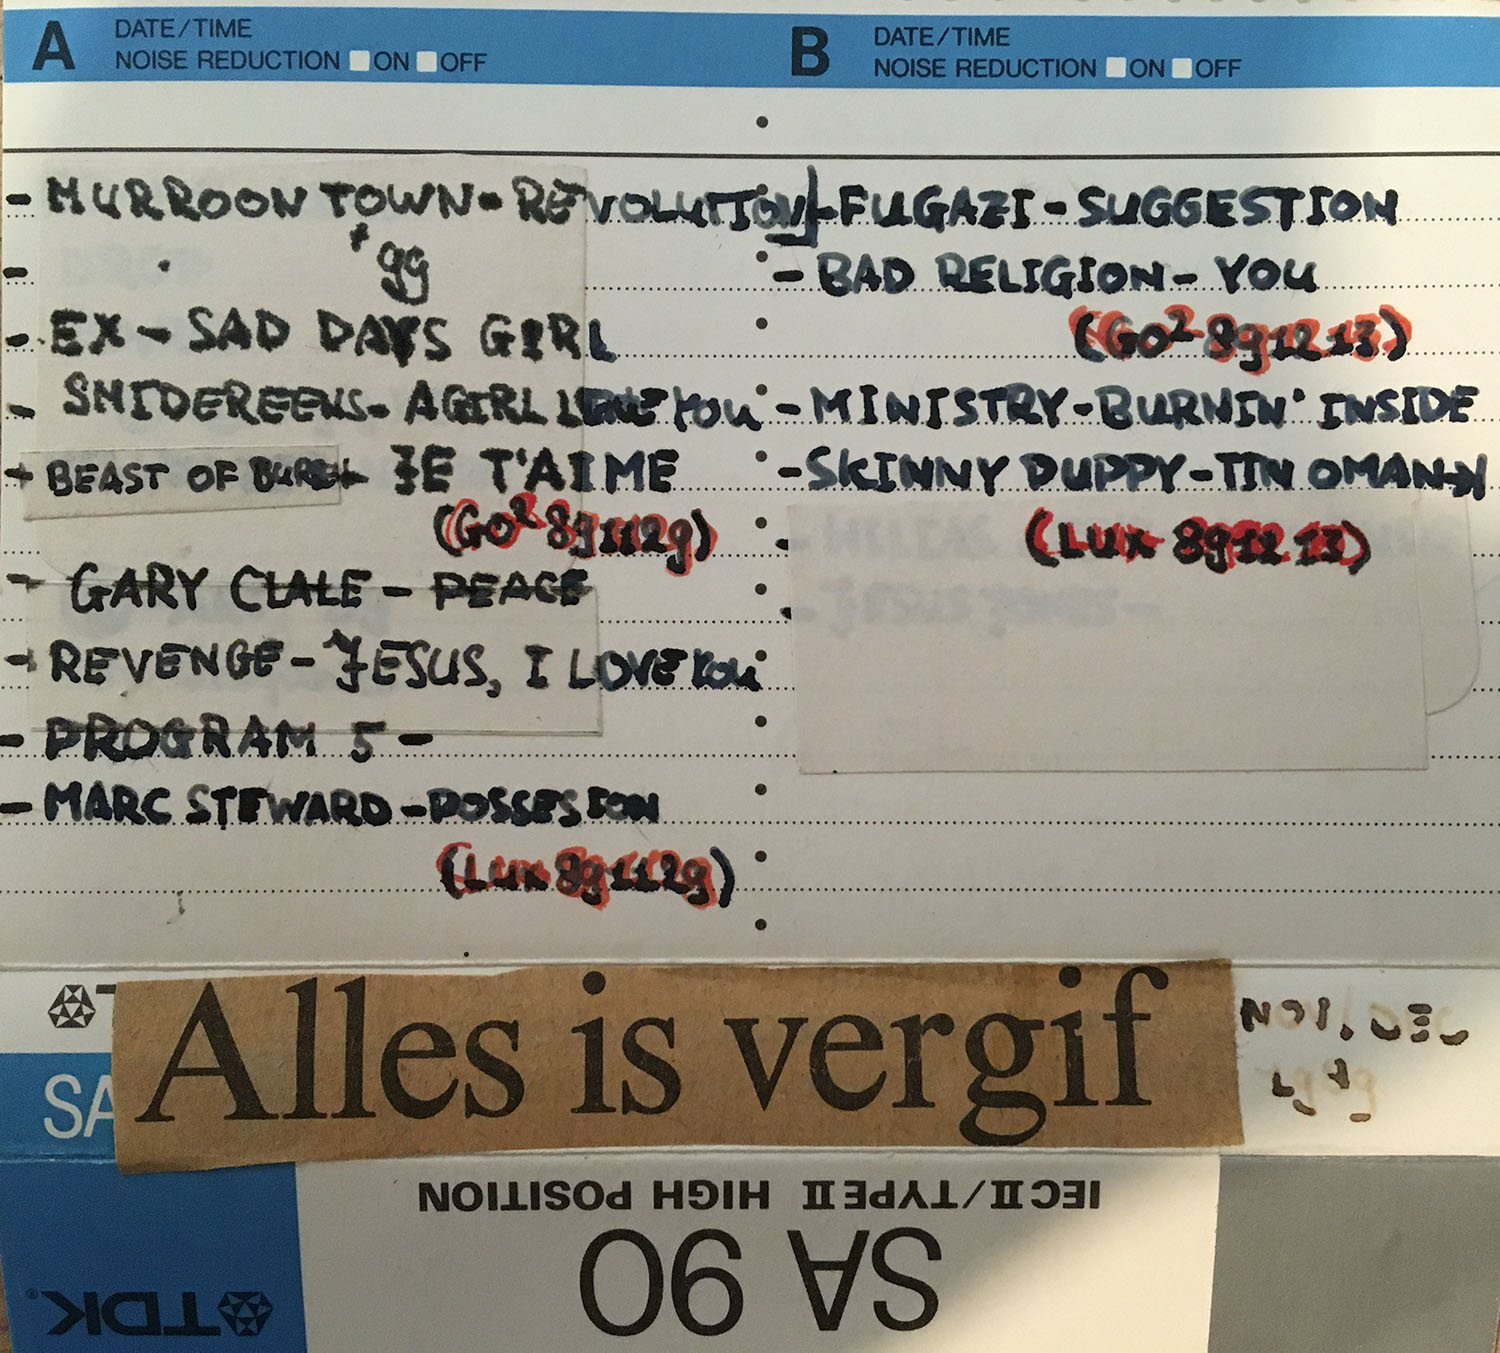 A DATE/TIME
NOISE REDUCTION ON OFF
- MURROON TOWN - REVOLUTION
+ gg
-
- EX - SAD DAYS GIRL
- SMIDEREENS - A GIRL LIKE YOU
- BEAST OF BUREL - JE T'AIME
(GO² 891129)
- GARY CLALE - PEACE
- REVENGE - JESUS, I LOVE YOU
- PROGRAM 5 -
- MARC STEWARD - POSSESION
(LUX 891129)
B DATE/TIME
NOISE REDUCTION ON OFF
- FUGAZI - SUGGESTION
- BAD RELIGION - YOU
(GO² 891213)
- MINISTRY - BURNIN' INSIDE
- SKINNY PUPPY - TIN OMAN
(LUX 891213)
SA
Alles is vergif
IEC II/TYPE II HIGH POSITION
SA 90
TDK